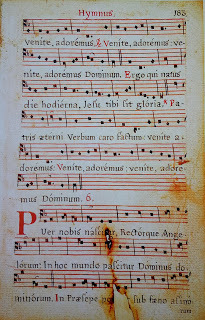 Hymnus. 183
venite, adorémus, ℟ Venite, adorémus: ve-
nite, adorémus Dominum. Ergo qui natus
die hodiérna, Jesu tibi sit glória: Pa-
tris æterni Verbum caro factum: venite a-
doremus: Venite, adoremus: venite, adore-
mus Dóminum. 6.
PUer nobis nascitur, Rectórque Ange-
lórum: In hoc mundo pascitur Dóminus do-
minórum. In Præsepe sub fæno
rum